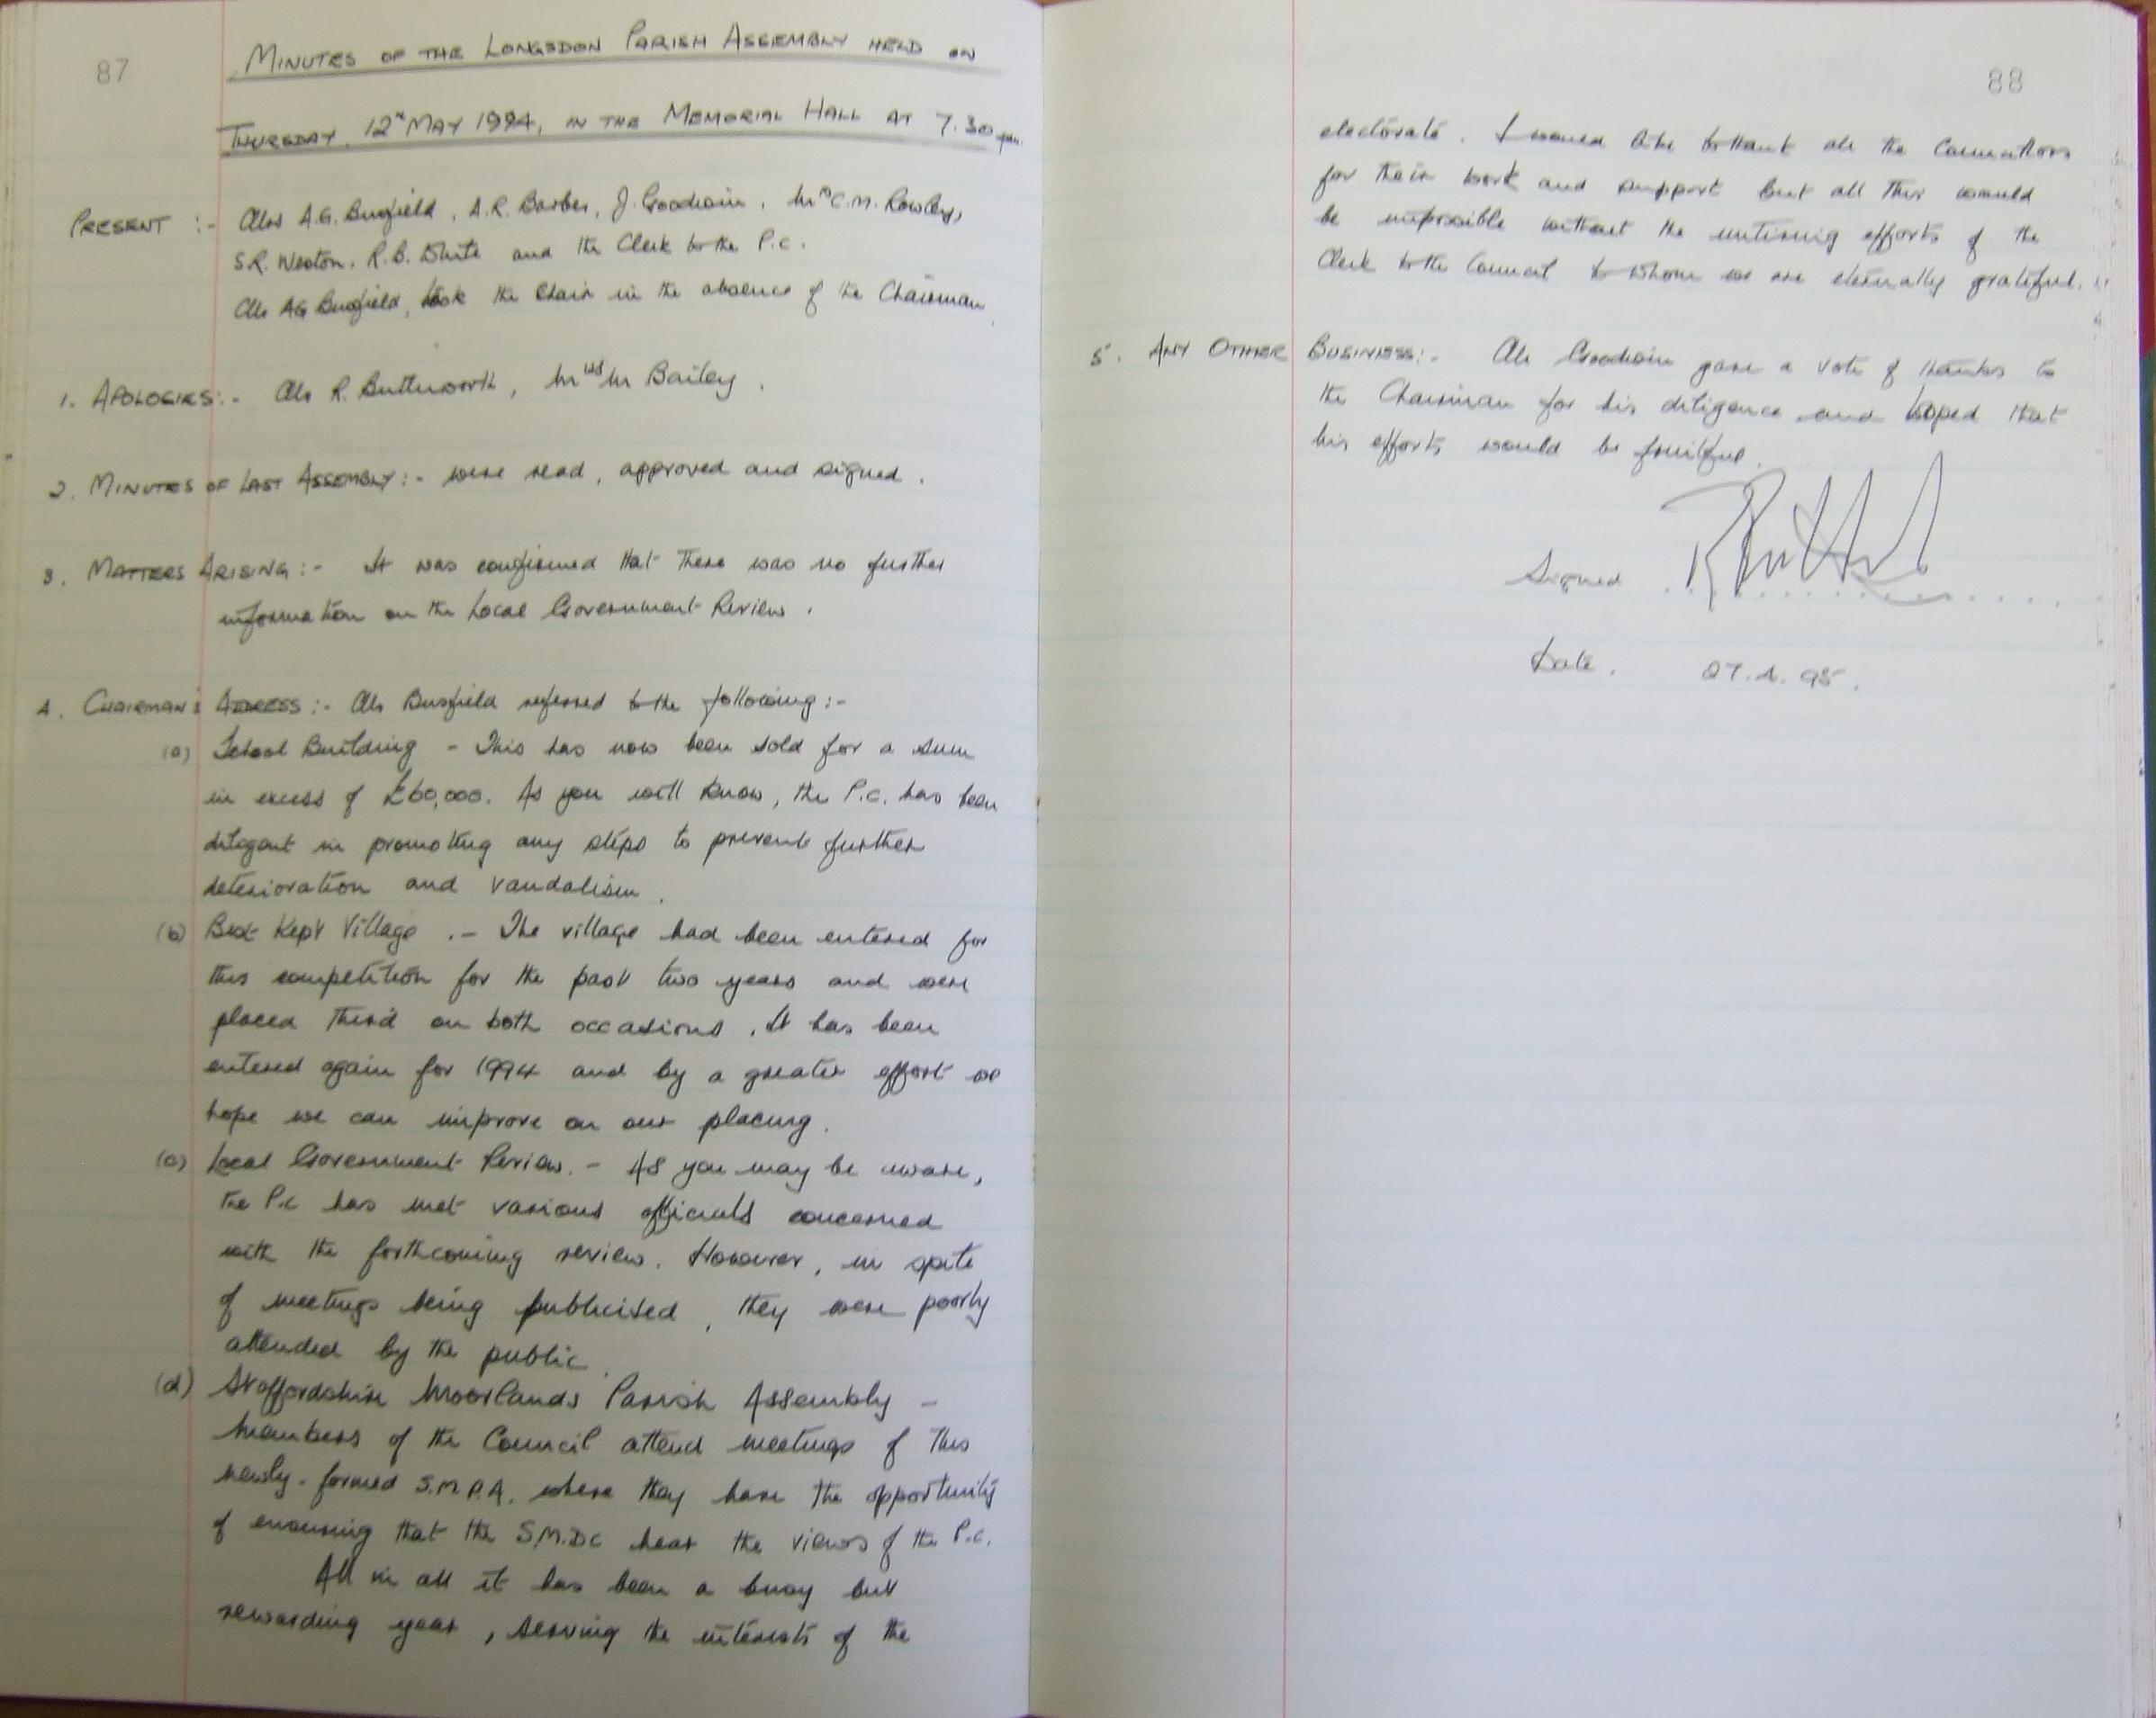 87
MINUTES OF THE LONGSDON PARISH ASSEMBLY HELD ON
THURSDAY, 12th MAY 1994, IN THE MEMORIAL HALL AT 7.30 pm.
PRESENT :- Cllrs A.G. Busfield, A.R. Barber, J. Goodwin, Mrs C.M. Rowley,
S.R. Weston, R.B. White and the Clerk to the P.C.
Cllr AG Busfield, took the Chair in the absence of the Chairman
1. APOLOGIES:- Cllr R. Butterworth, Mr & Mrs Bailey.
2. MINUTES OF LAST ASSEMBLY:- were read, approved and signed.
3. MATTERS ARISING:- It was confirmed that there was no further
information on the Local Government Review.
4. CHAIRMAN'S ADDRESS:- Cllr Busfield referred to the following:-
(a) School Building - This has now been sold for a sum
in excess of £60,000. As you will know, the P.C. has been
diligent in promoting any steps to prevent further
deterioration and vandalism.
(b) Best Kept Village. - The village had been entered for
this competition for the past two years and were
placed third on both occasions. It has been
entered again for 1994 and by a greater effort we
hope we can improve on our placing.
(c) Local Government Review. - As you may be aware,
the P.C has met various officials concerned
with the forthcoming review. However, in spite
of meetings being publicised, they were poorly
attended by the public.
(d) Staffordshire Moorlands Parish Assembly -
Members of the Council attend meetings of this
newly-formed S.M.P.A. where they have the opportunity
of ensuring that the S.M.DC hear the views of the P.C.
All in all it has been a busy but
rewarding year, serving the interests of the
88
electorate. I would like to thank all the Councillors
for their work and support but all this would
be impossible without the untiring efforts of the
Clerk to the Council to whom we are eternally grateful.
5. ANY OTHER BUSINESS:- Cllr Goodwin gave a vote of thanks to
the Chairman for his diligence and hoped that
his efforts would be fruitful.
Signed
Date. 27.4.95.